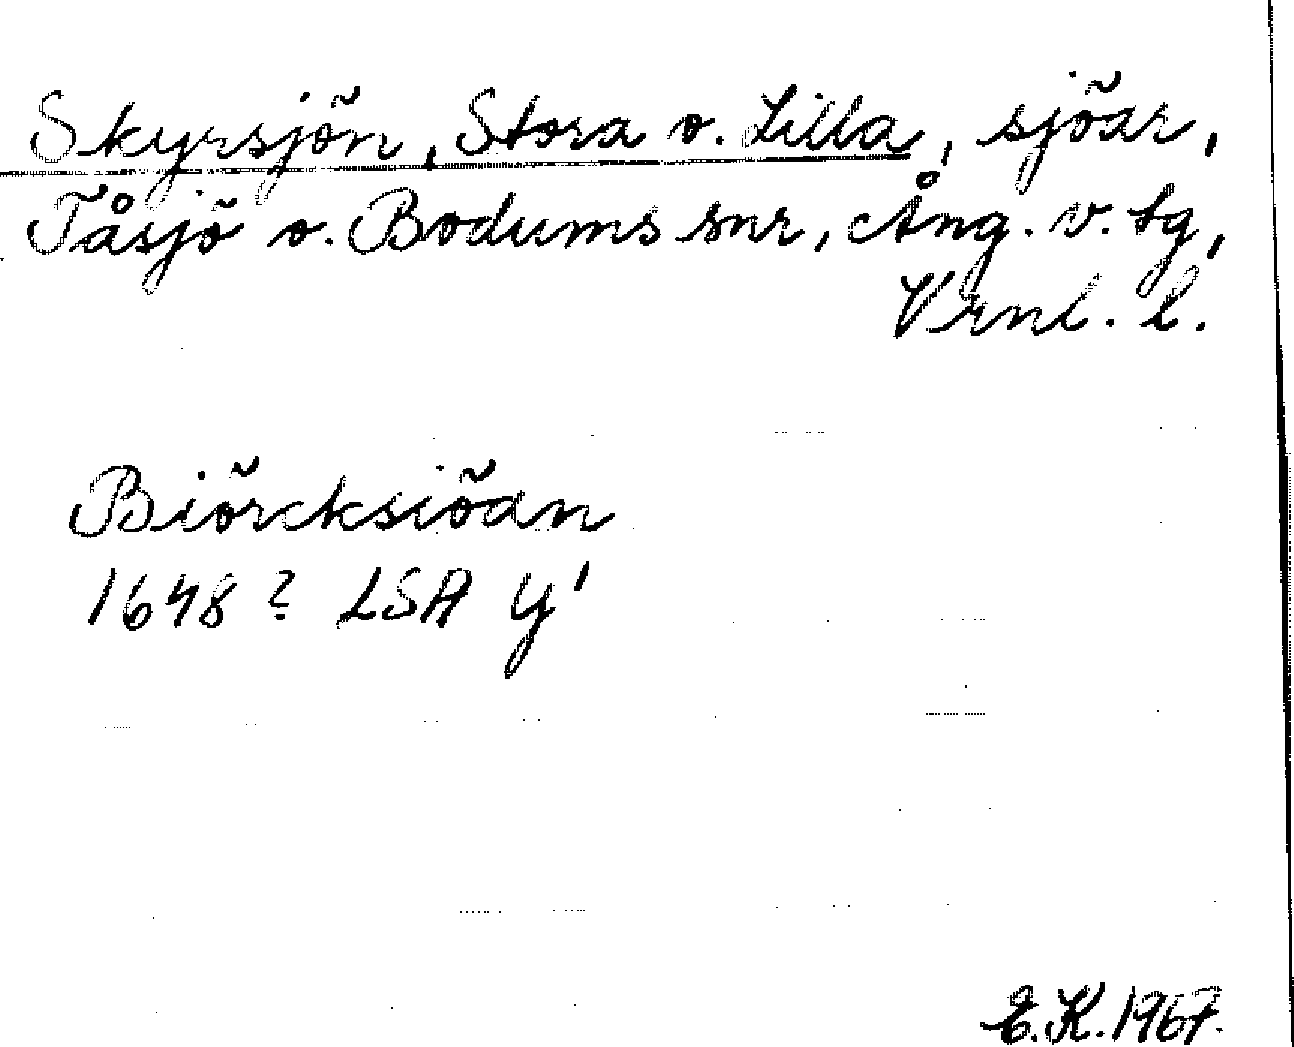 Skyrsjön, Stora o. Lilla, sjöar,
Tåsjö o. Bodums snr, Ång. v. tg,
Vrnl. l.
Biörcksiöan
1648? LSA Y1
E.K. 1967.